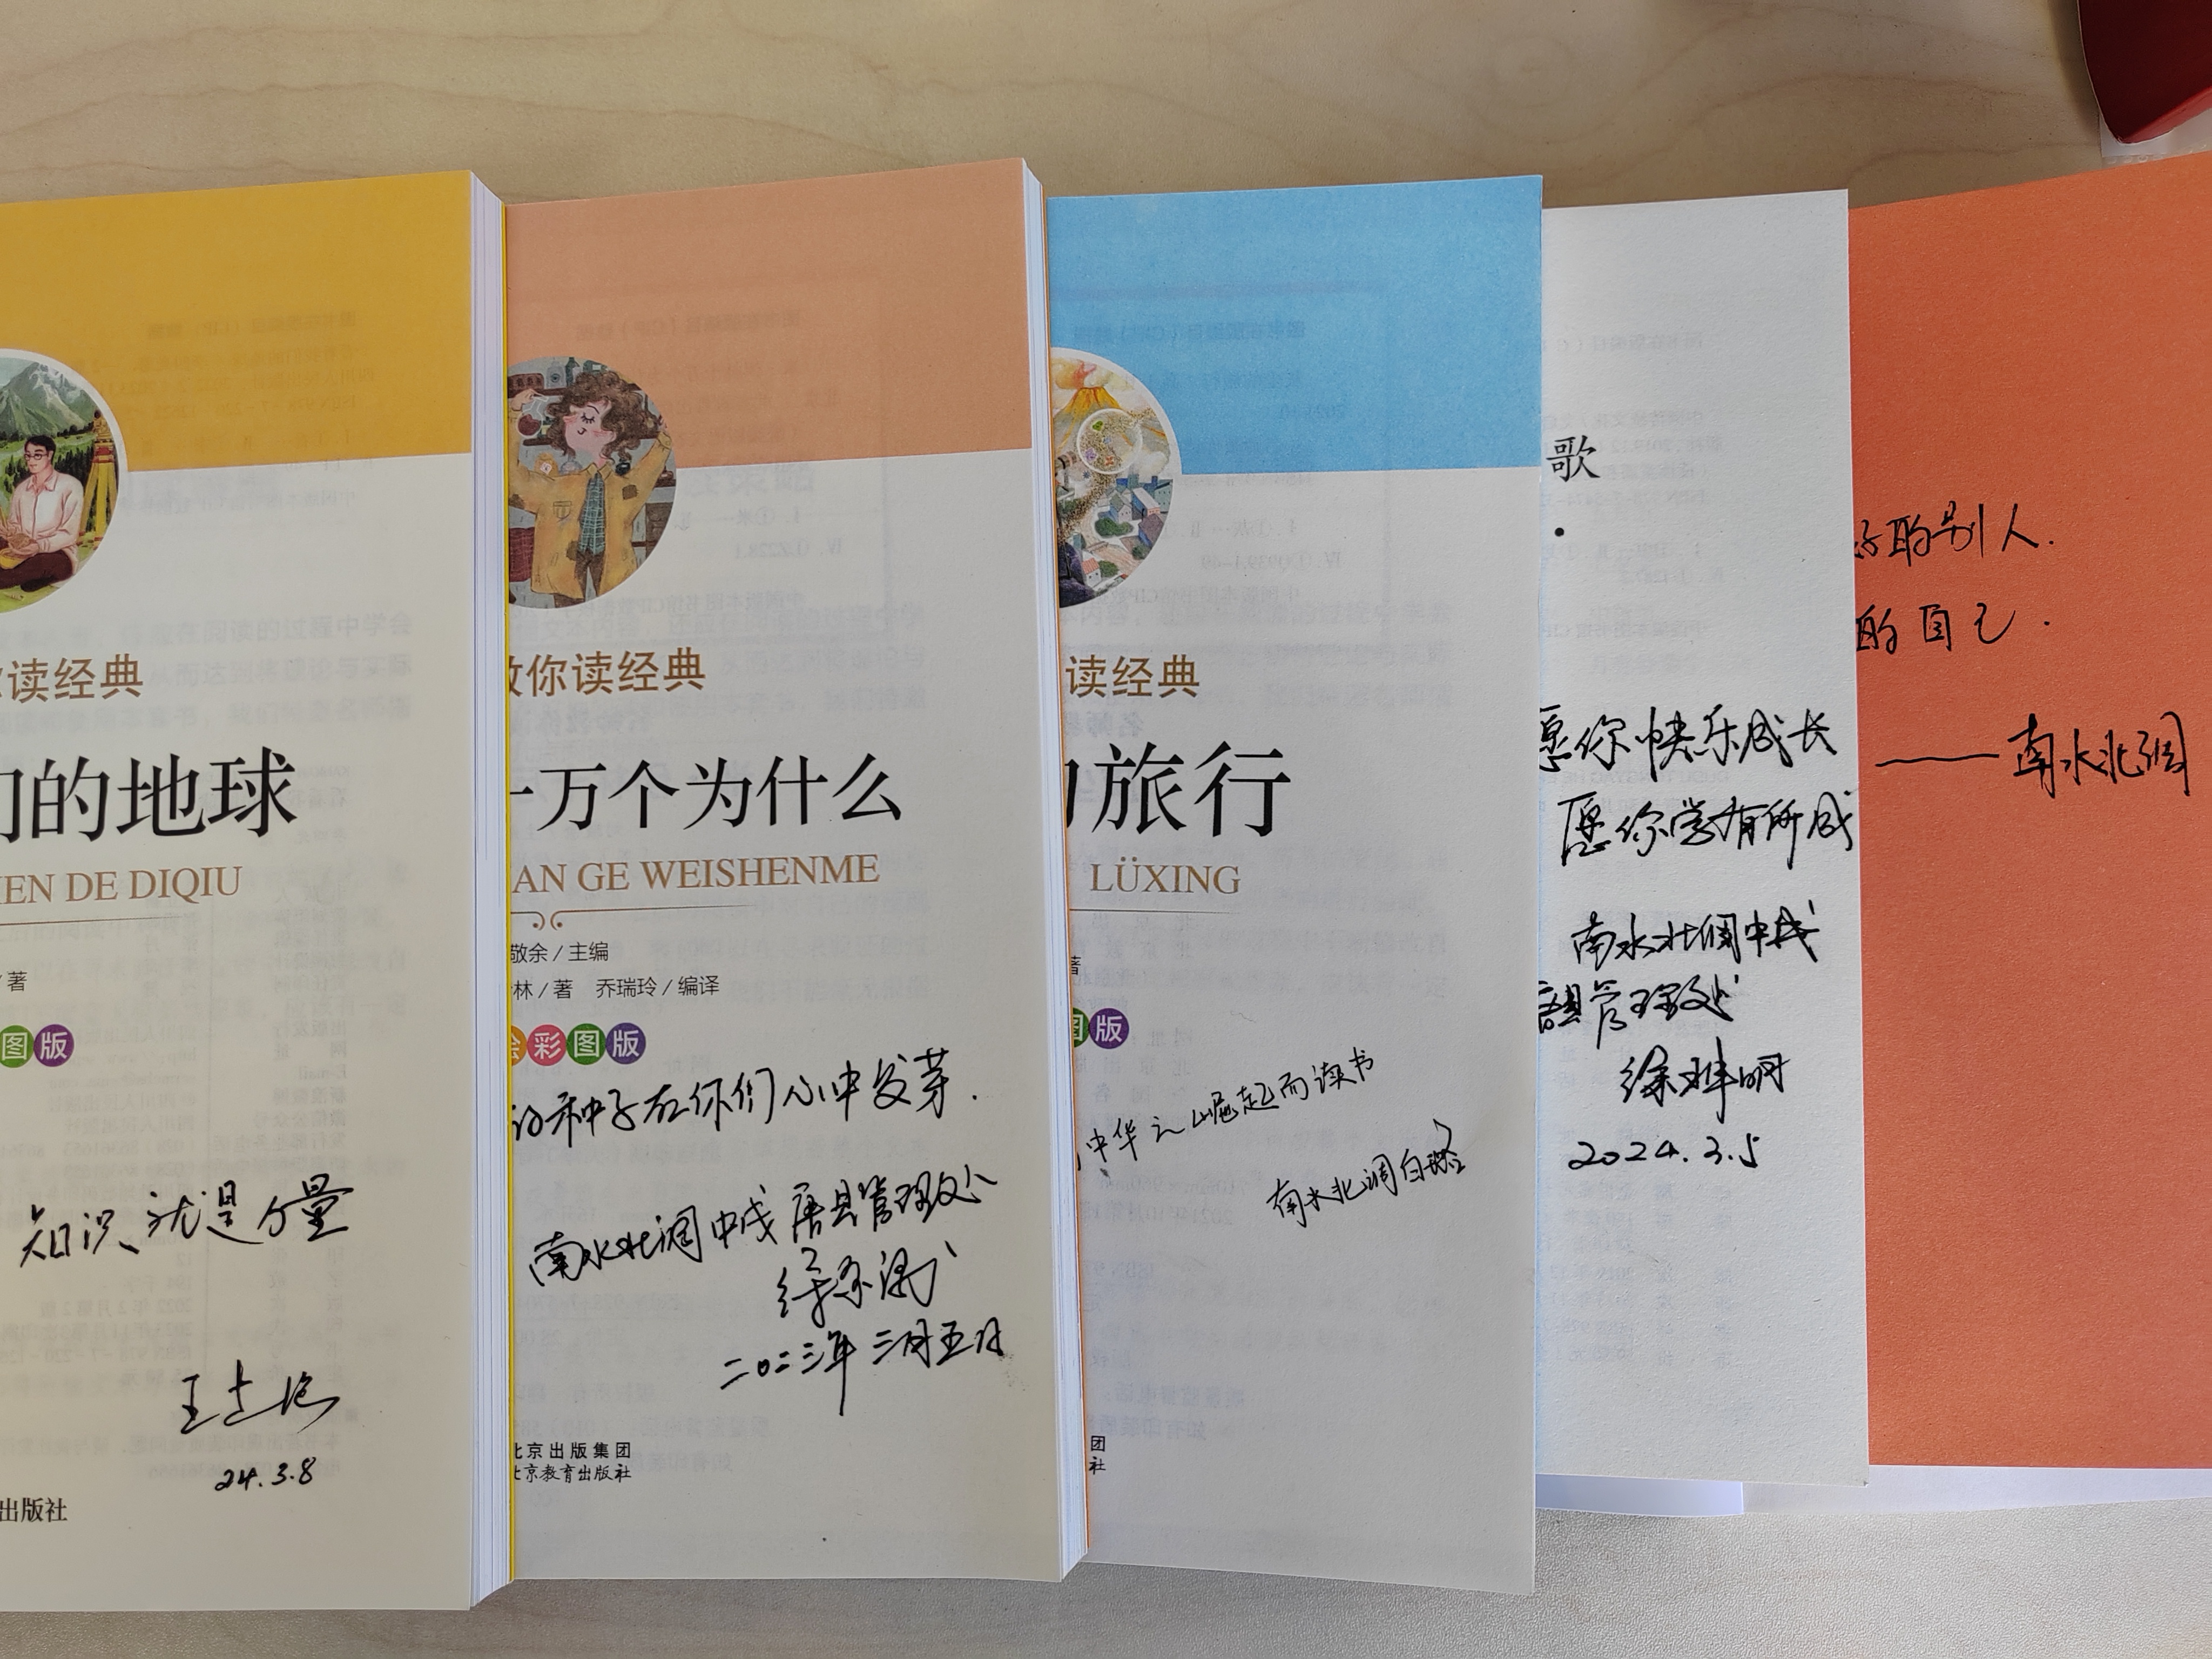 读经典
们的地球
MEN DE DIQIU
/著
图版
知识就是力量
24.3.8
出版社
教你读经典
十万个为什么
AN GE WEISHENME
敬余/主编
林/著 乔瑞玲/编译
绘彩图版
的种子在你们心中发芽.
南水北调中线唐县管理处
二〇二三年三月五日
北京出版集团
北京教育出版社
读经典
旅行
LÜXING
著
图版
中华之崛起而读书
南水北调白璐
团
社
歌
·
愿你快乐成长
愿你学有所成
南水北调中线
唐县管理处
2024.3.5
好的别人.
的自己.
——南水北调